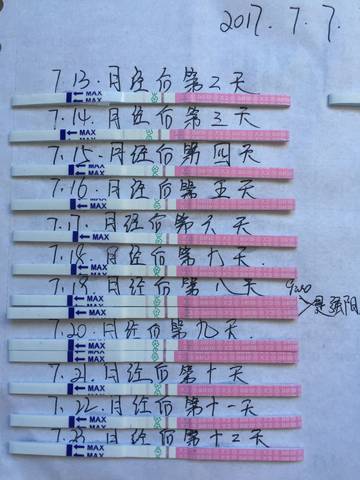 2017.7.7.
7.13.月经后第二天
MAX
7.14.月经后第三天
MAX
7.15.月经后第四天
MAX
7.16.月经后第五天
MAX
7.17.月经后第六天
MAX
7.18.月经后第七天.
MAX
7.19.月经后第八天
MAX
MAX
强阳
7.20.月经后第九天
MAX
MAX
7.21.月经后第十天
MAX
7.22.月经后第十一天
MAX
7.23.月经后第十二天
MAX